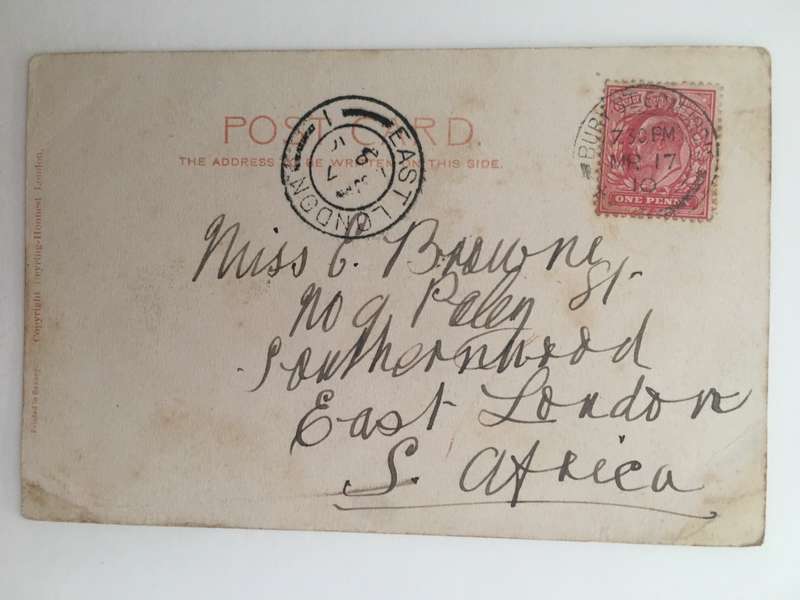 POST CARD.
THE ADDRESS TO BE WRITTEN ON THIS SIDE.
EAST LONDON
1
BURY ST EDMUNDS
7 30 PM
MR 17
10
ONE PENNY
Miss C. Browne
No 9 Paley St.
Southernwood
East London
S. Africa
Copyright Tyring-Honnest London.
Printed in Saxony.